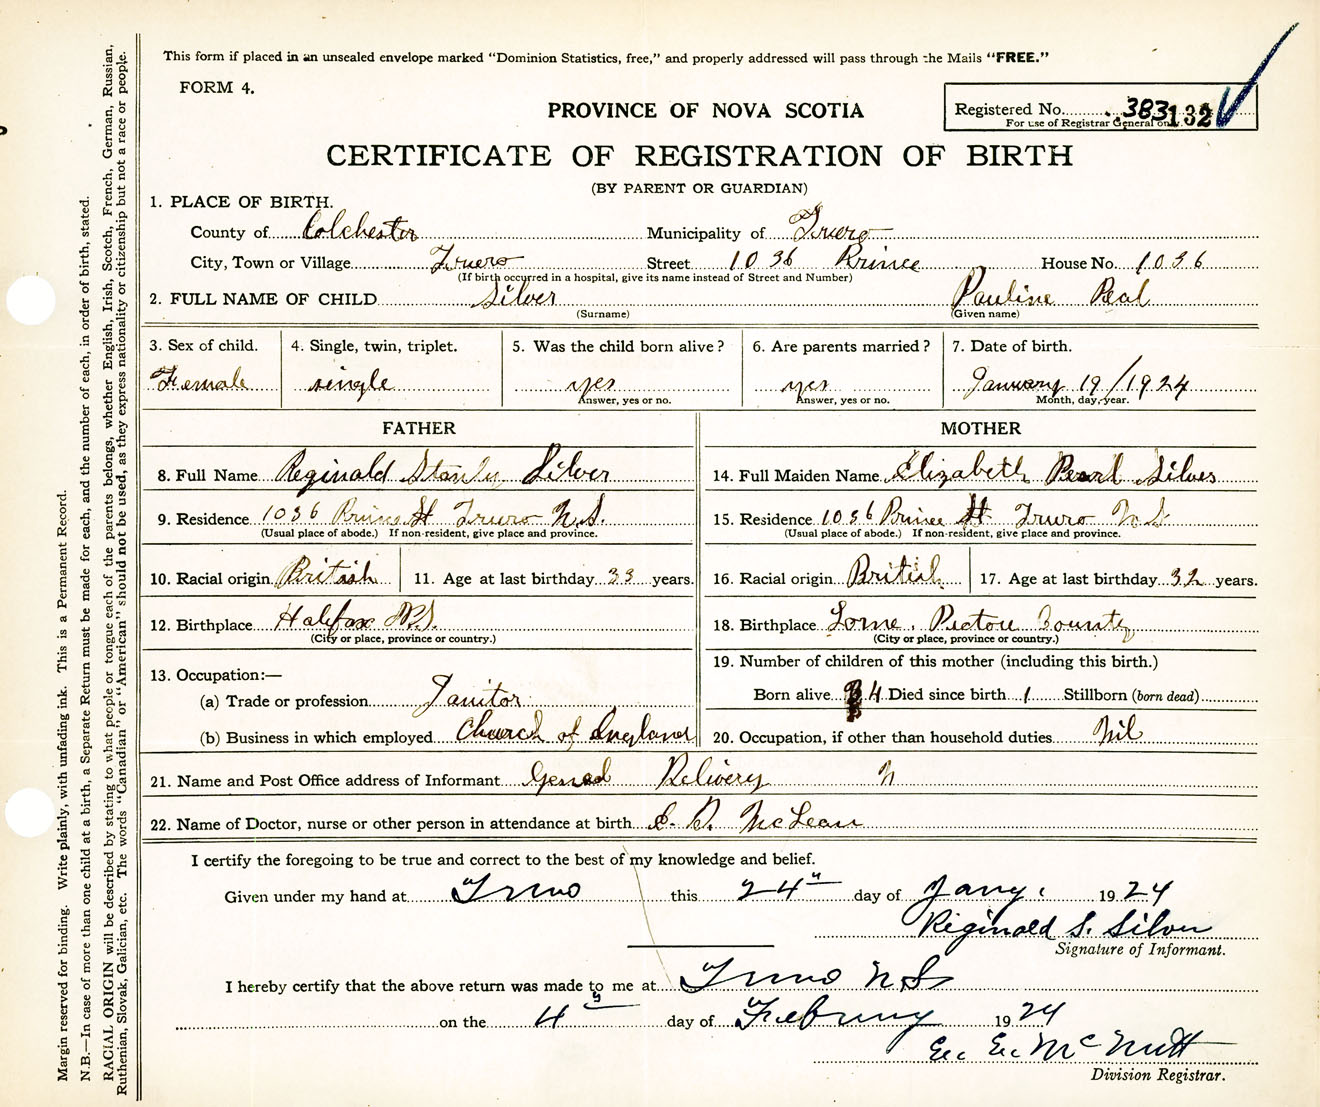 This form if placed in an unsealed envelope marked "Dominion Statistics, free," and properly addressed will pass through the Mails "FREE."
FORM 4.
PROVINCE OF NOVA SCOTIA
Registered No. 383132
For use of Registrar General only.
CERTIFICATE OF REGISTRATION OF BIRTH
(BY PARENT OR GUARDIAN)
1. PLACE OF BIRTH.
County of Colchester Municipality of Truro
City, Town or Village Truro Street 1036 Prince House No. 1036
(If birth occurred in a hospital, give its name instead of Street and Number)
2. FULL NAME OF CHILD Silver Pauline Peal
(Surname) (Given name)
3. Sex of child. 4. Single, twin, triplet. 5. Was the child born alive? 6. Are parents married? 7. Date of birth.
Female single yes yes January 19/1924
Answer, yes or no. Answer, yes or no. Month, day, year.
FATHER MOTHER
8. Full Name Reginald Stanly Silver 14. Full Maiden Name Elizabeth Pearl Silver
9. Residence 1036 Prince St Truro N.S. 15. Residence 1036 Prince St Truro N S
(Usual place of abode.) If non-resident, give place and province. (Usual place of abode.) If non-resident, give place and province.
10. Racial origin British 11. Age at last birthday 33 years. 16. Racial origin British 17. Age at last birthday 32 years.
12. Birthplace Halifax N.S. 18. Birthplace Lorne, Pictou County
(City or place, province or country.) (City or place, province or country.)
13. Occupation:— 19. Number of children of this mother (including this birth.)
(a) Trade or profession Janitor Born alive 4 Died since birth 1 Stillborn (born dead)
(b) Business in which employed Church of England 20. Occupation, if other than household duties Nil
21. Name and Post Office address of Informant Delivery
22. Name of Doctor, nurse or other person in attendance at birth McLean
I certify the foregoing to be true and correct to the best of my knowledge and belief.
Given under my hand at Truro this 24th day of Jany. 1924
Reginald S. Silver
Signature of Informant.
I hereby certify that the above return was made to me at Truro N S
on the 4th day of Februay 1924
McNutt
Division Registrar.
Margin reserved for binding. Write plainly, with unfading ink. This is a Permanent Record.
N.B.—In case of more than one child at a birth, a Separate Return must be made for each, and the number of each, in order of birth, stated.
RACIAL ORIGIN will be described by stating to what people or tongue each of the parents belongs, whether English, Irish, Scotch, French, German, Russian,
Ruthenian, Slovak, Galician, etc. The words "Canadian" or "American" should not be used, as they express nationality or citizenship but not a race or people.